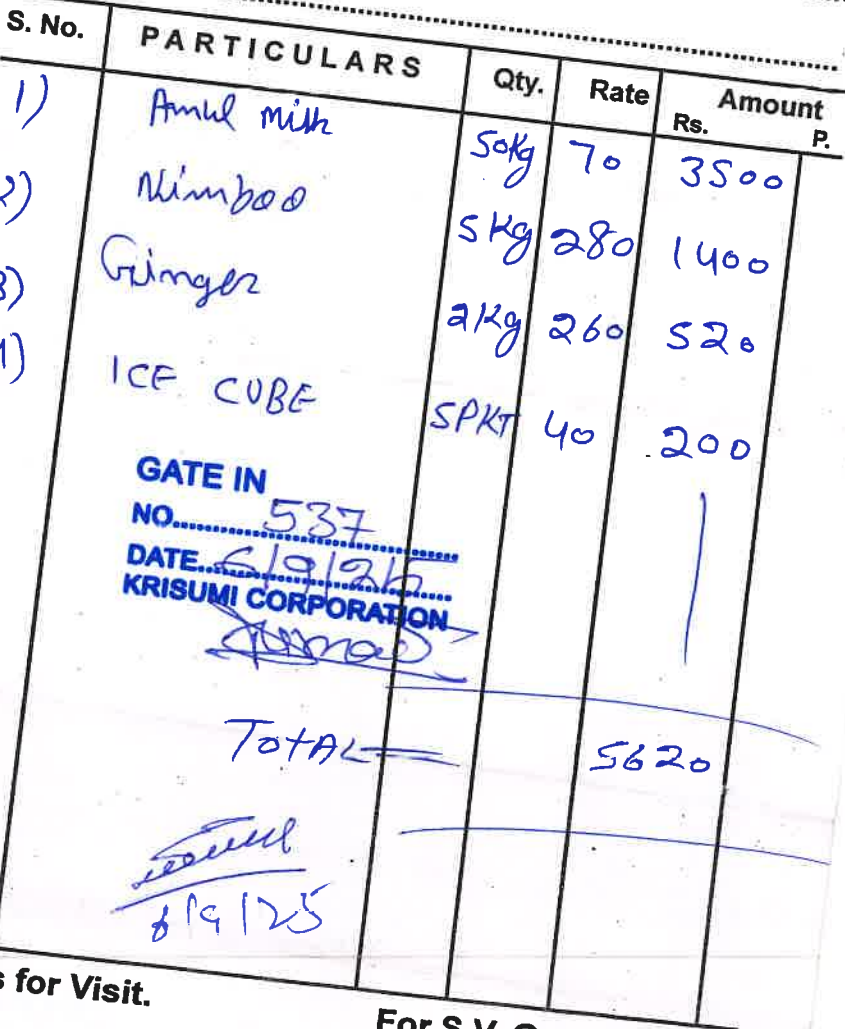 S. No. PARTICULARS Qty. Rate Amount
Rs. P.
1) Amul Milk 50Kg 70 3500
2) Nimboo 5Kg 280 1400
3) Ginger 2Kg 260 520
4) ICE CUBE 5PKT 40 200
GATE IN
NO. 537
DATE 6/9/25
KRISUMI CORPORATION
TOTAL 5620
6/9/25
s for Visit.
For S.V.